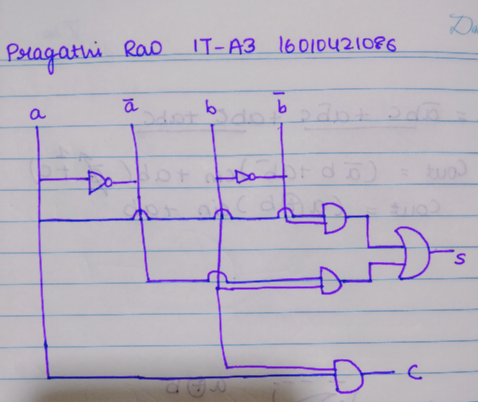 Pragathi Rao IT-A3 16010421086
a ā b b̄
S
C